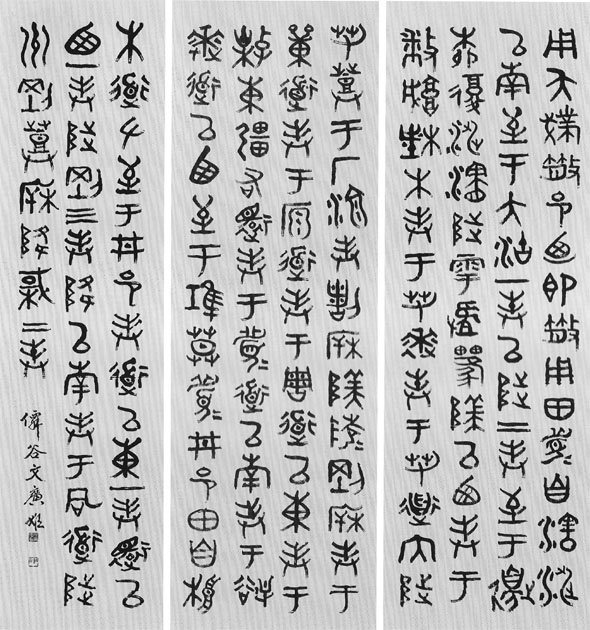 用夨撲散邑迺即散用田眉自瀗涉
以南至于大沽一封以陟二封至于邊
柳復涉瀗陟雩以西封于
城木封于芻逨封于芻道內陟
芻登于厂湶封剖𣏟陵剛𣏟封于
單道封于原道封于周道以東封于
東疆右還封于眉道以南封于
逨道以西至于莫眉井邑田自根
木道左至于井邑封道以東一封還以
西一封陟剛三封降以南封于同道陟
州剛登𣏟降棫二封
谷文廣